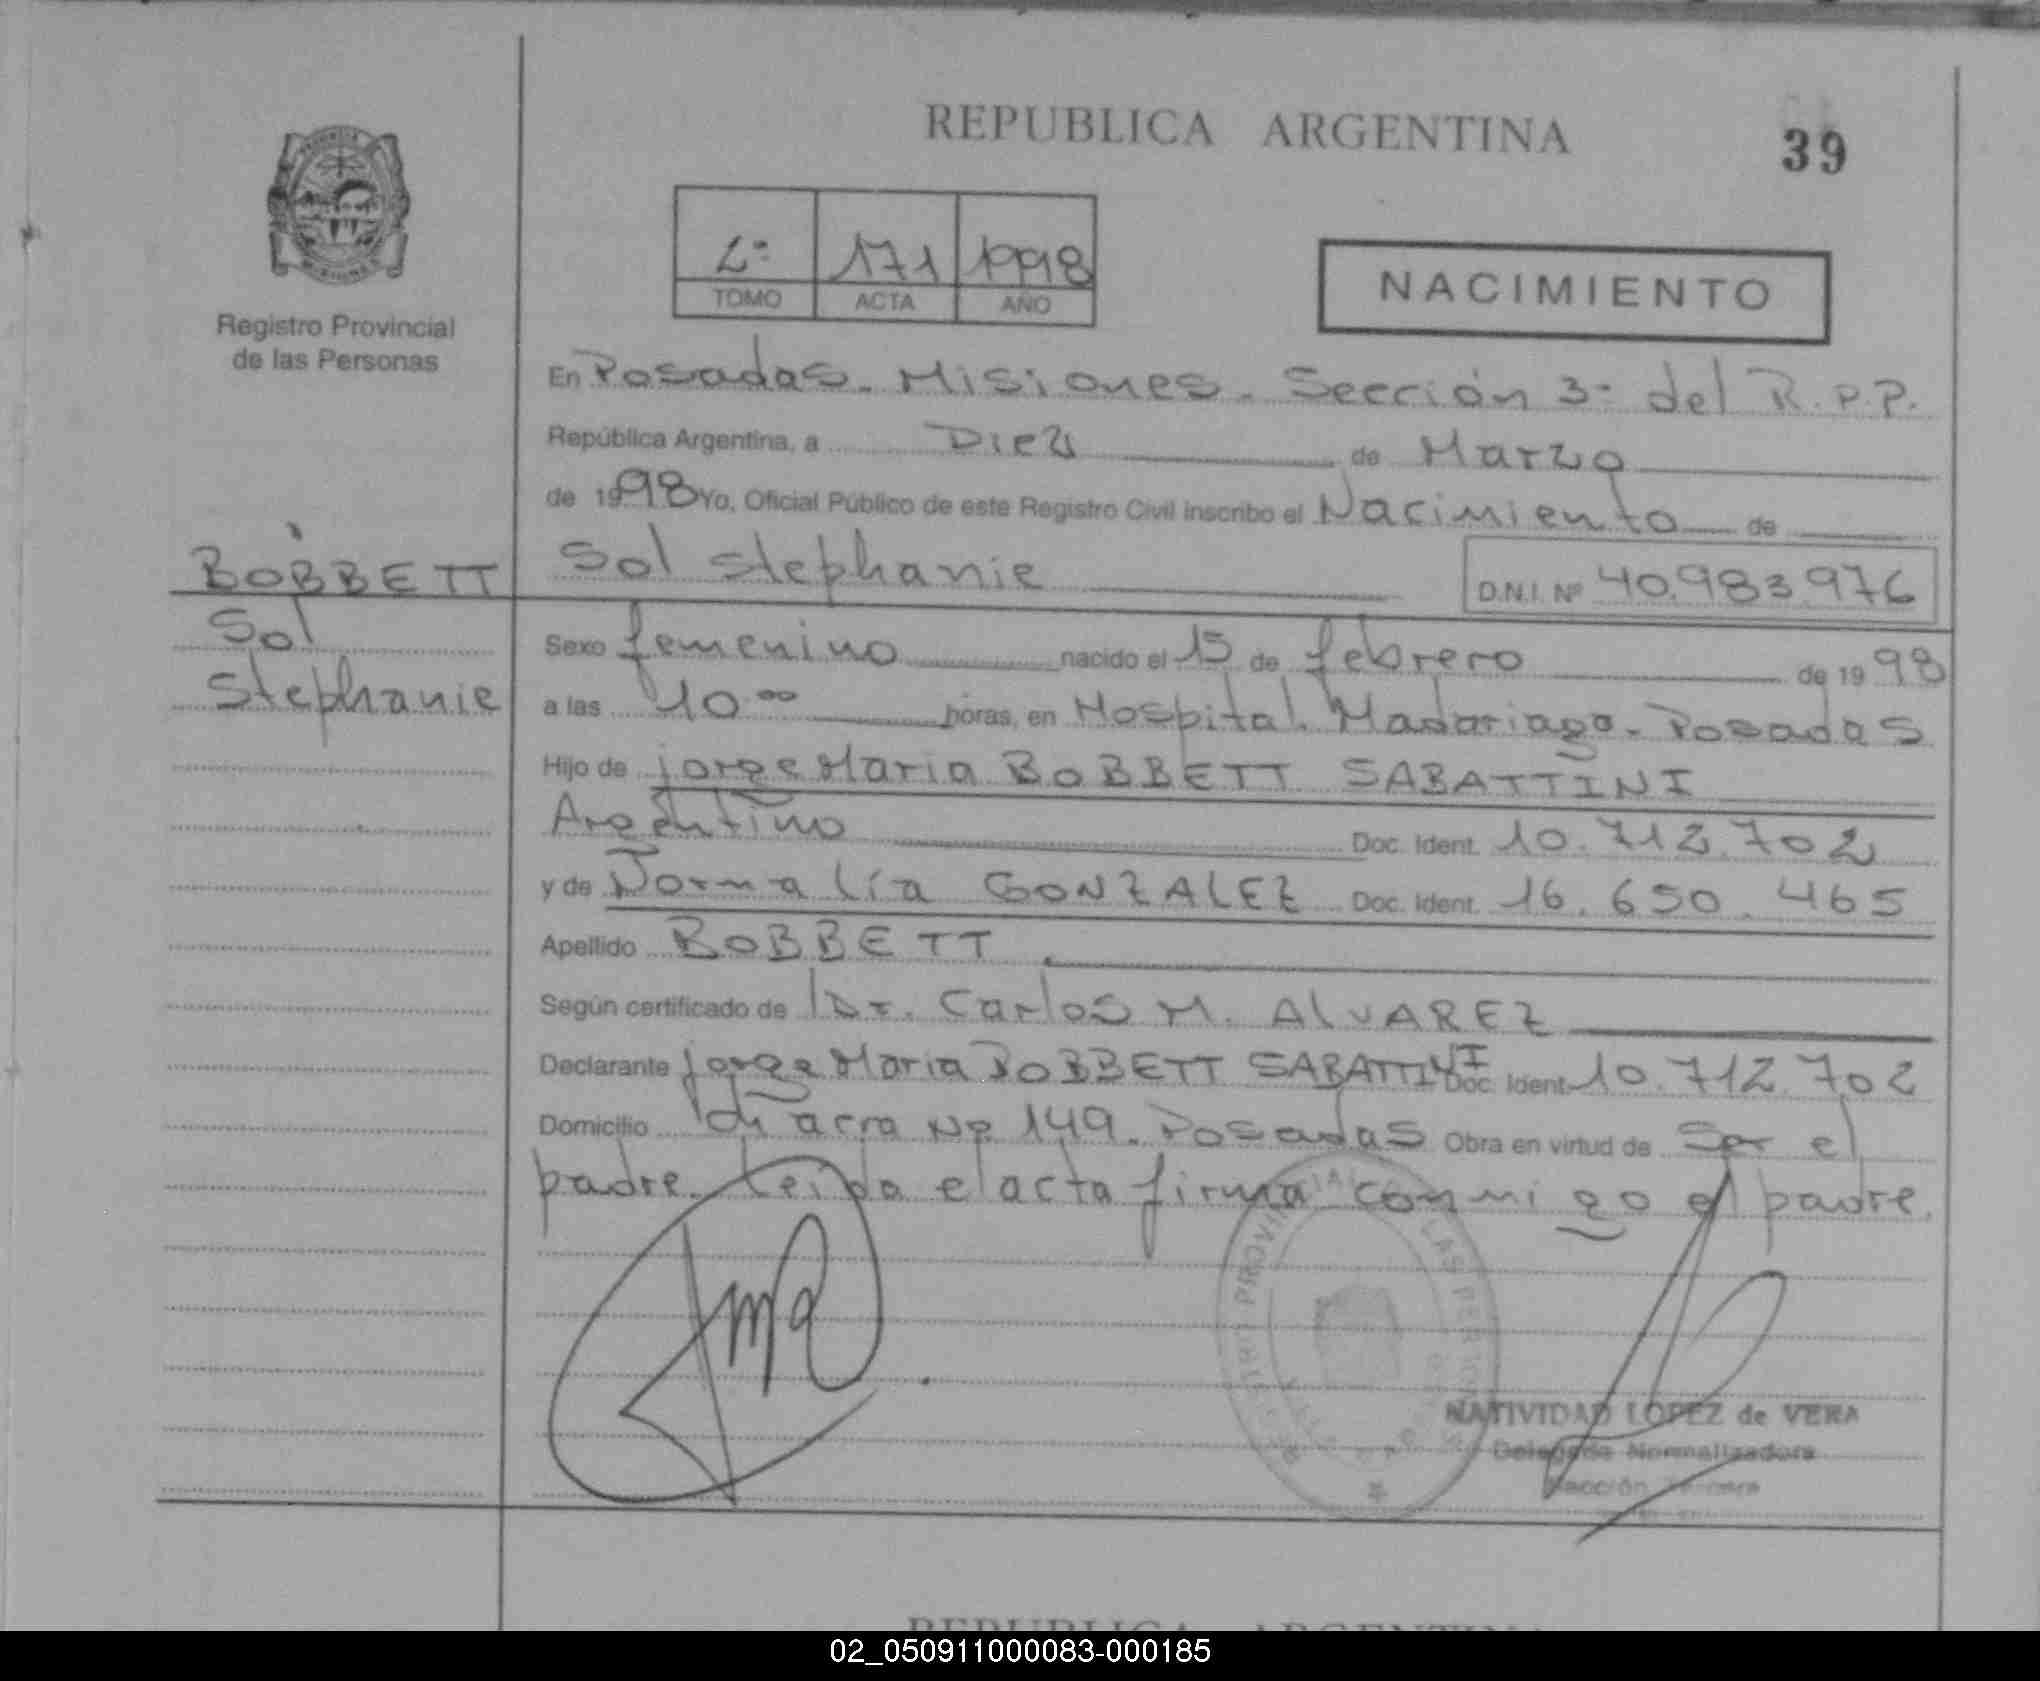 REPUBLICA ARGENTINA
39
2º 171 1998
TOMO ACTA AÑO
NACIMIENTO
Registro Provincial
de las Personas
En Posadas. Misiones. Sección 3ª del R.P.P.
República Argentina, a Diez de Marzo
de 1998 Yo, Oficial Público de este Registro Civil inscribo el Nacimiento de
BOBBETT Sol Stephanie D.N.I. Nº 40.983.976
Sol
Stephanie
Sexo femenino nacido el 15 de febrero de 1998
a las 10⁰⁰ horas, en Hospital Madariaga. Posadas
Hijo de Jorge Maria BOBBETT SABATTINI
Argentino Doc. Ident. 10.712.702
y de Norma Lía GONZALEZ Doc. Ident. 16.650.465
Apellido BOBBETT
Según certificado de Dr. Carlos M. ALVAREZ
Declarante Jorge Maria BOBBETT SABATTINI Doc. Ident. 10.712.702
Domicilio Chacra Nº 149. Posadas Obra en virtud de Ser el
padre. Leida el acta firma conmigo el padre.
NATIVIDAD LOPEZ de VERA
Delegada Normalizadora
Sección Tercera
REPUBLICA ARGENTINA
02_050911000083-000185